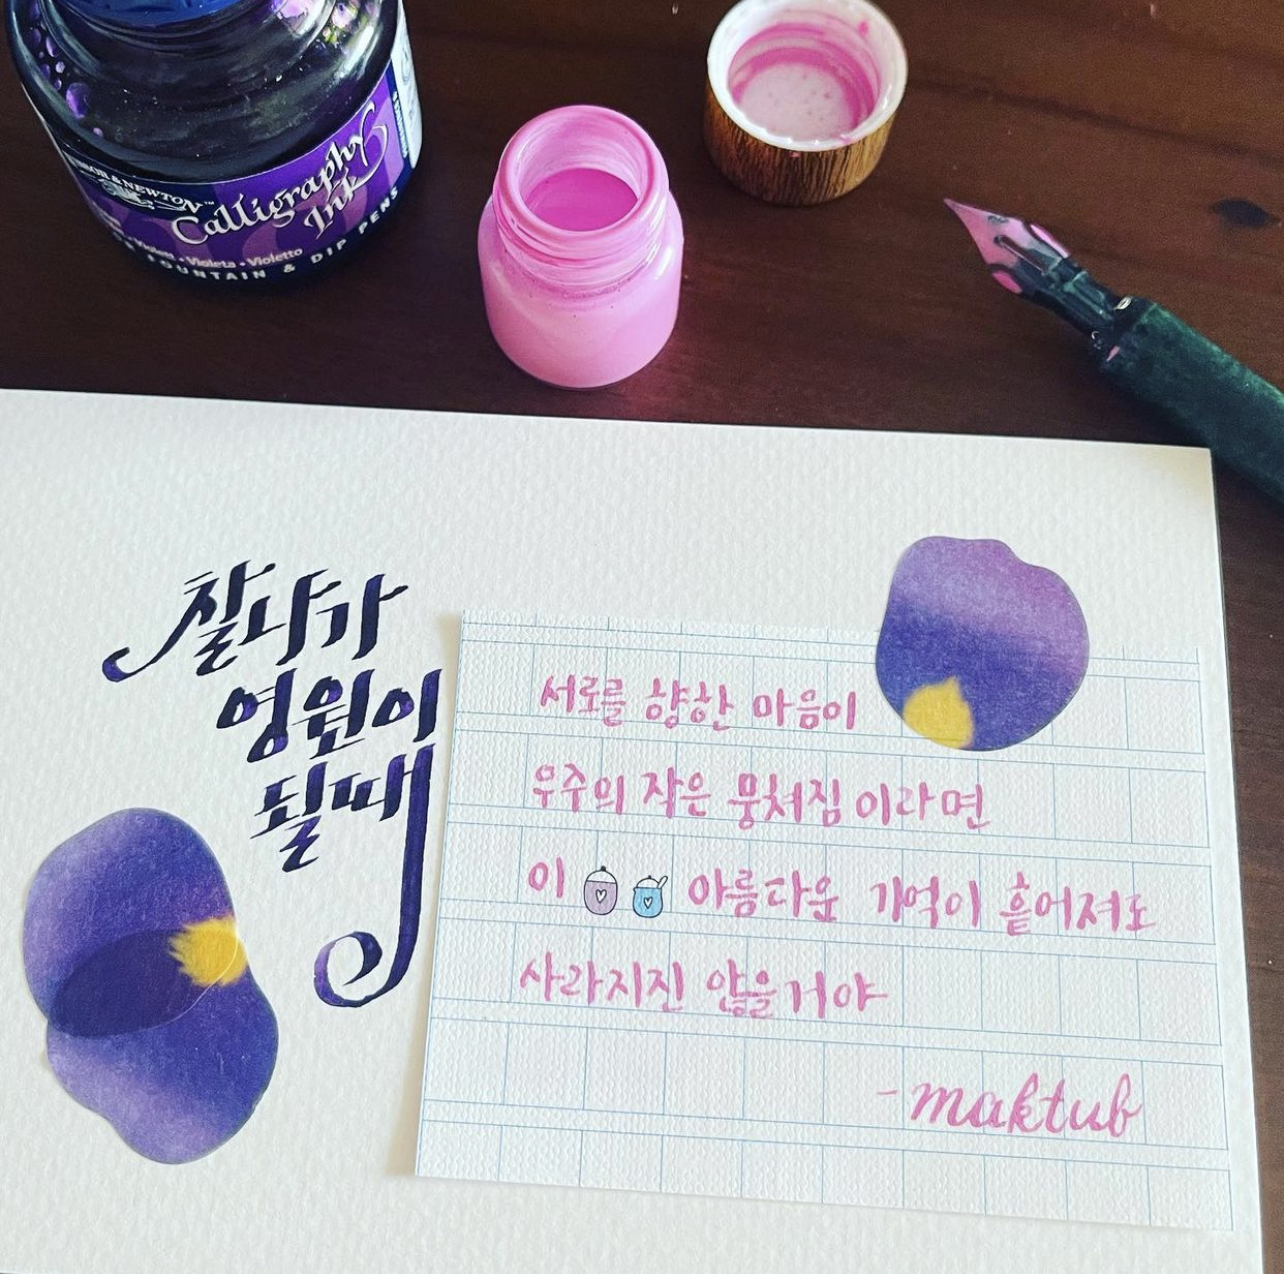 WINSOR & NEWTON™
Calligraphy
Ink
Violeta • Violetto
FOUNTAIN & DIP PENS
찰나가
영원이
될때
서로를 향한 마음이
우주의 작은 뭉쳐짐이라면
이 아름다운 기억이 흩어져도
사라지진 않을거야
- maktub